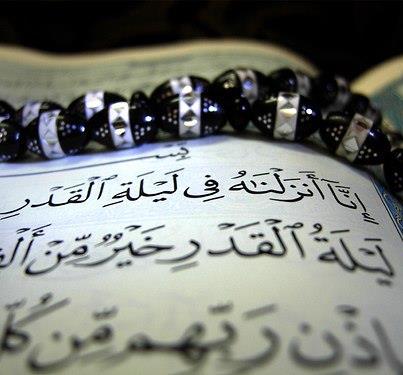 إِنَّآ أَنزَلۡنَٰهُ فِي لَيۡلَةِ ٱلۡقَدۡرِ
لَيۡلَةُ ٱلۡقَدۡرِ خَيۡرٞ مِّنۡ أَلۡفِ
إِذۡنِ رَبِّهِم مِّن كُلِّ